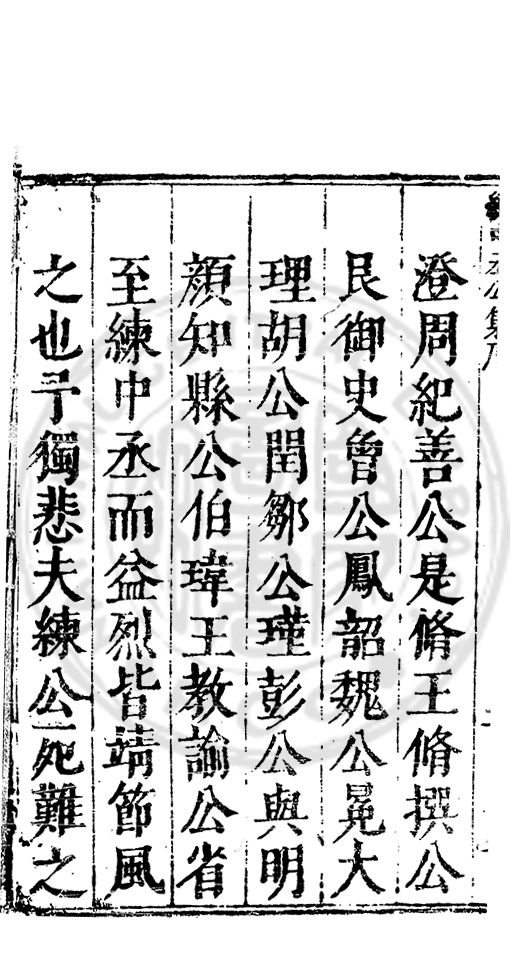 澄周紀善公是脩王脩撰公
艮御史曾公鳳韶魏公冕大
理胡公閏鄒公瑾彭公與明
顔知縣公伯瑋王教諭公省
至練中丞而益烈皆靖節風
之也予獨悲夫練公死難之